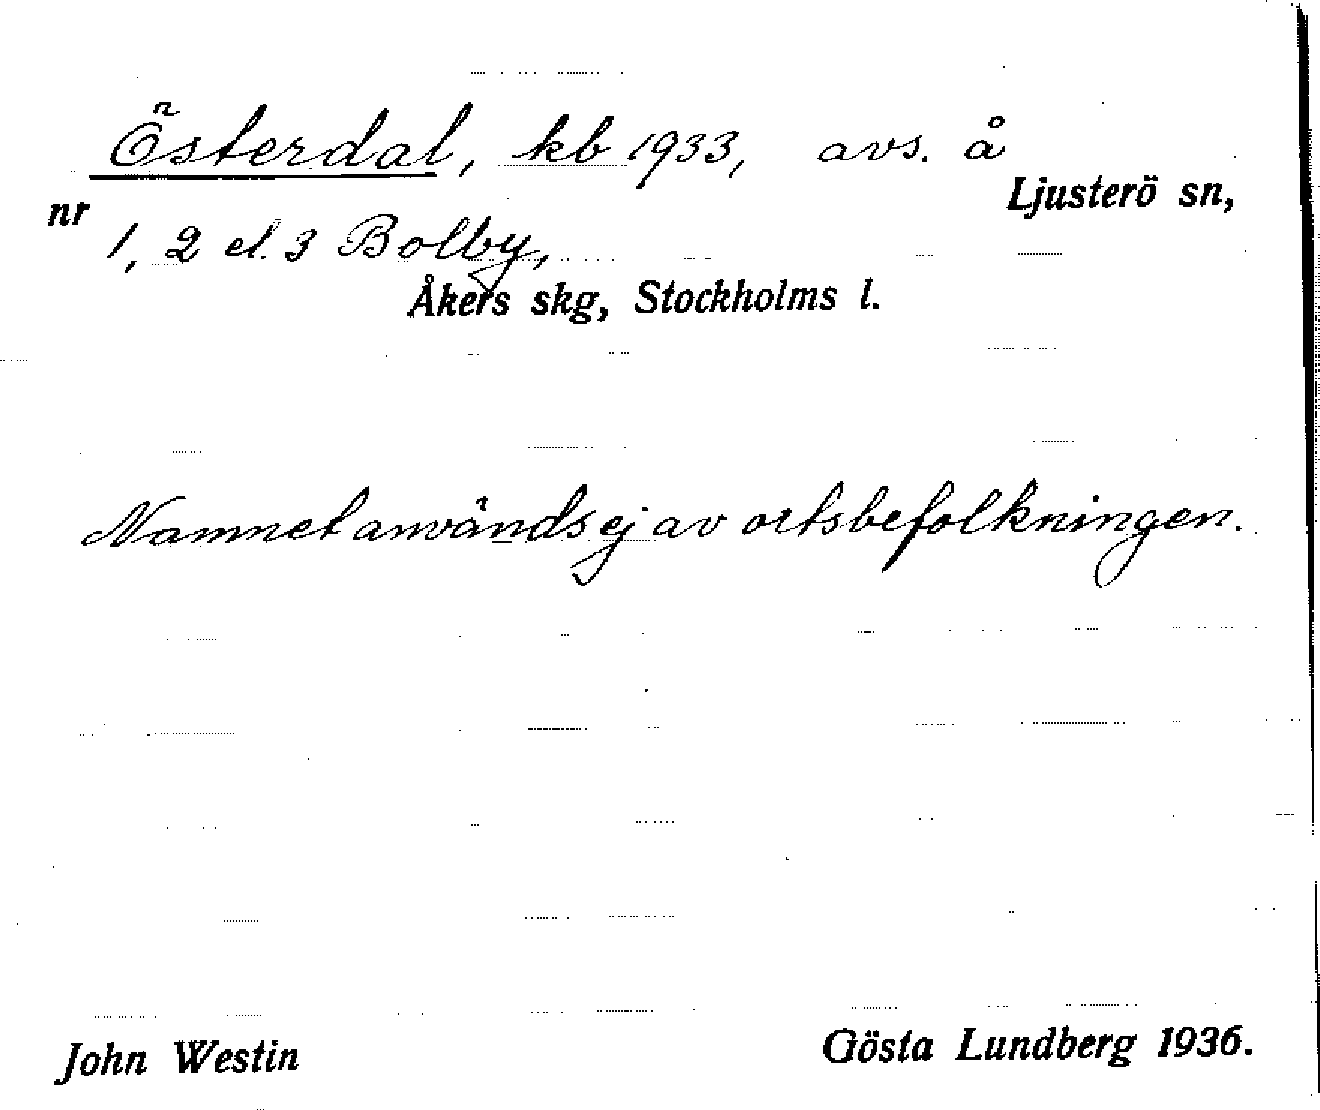 Österdal, kb 1933, avs. å
Ljusterö sn,
nr 1, 2 el. 3 Bolby,
Åkers skg, Stockholms l.
Namnet användes ej av ortsbefolkningen.
John Westin Gösta Lundberg 1936.